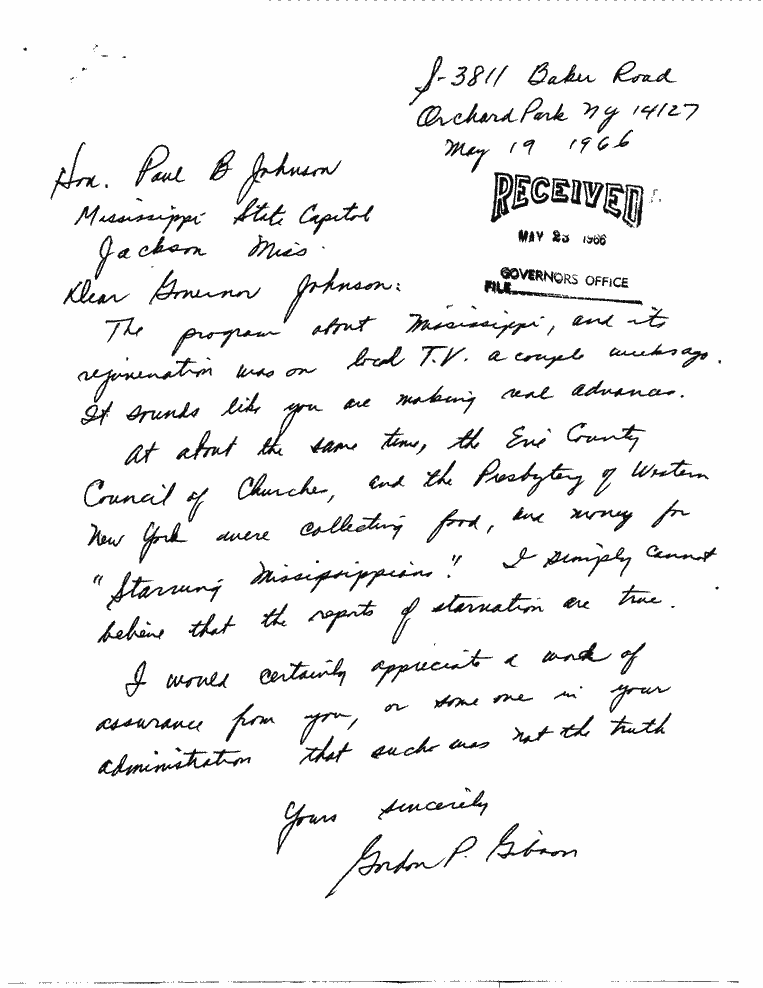 S-3811 Baker Road
Orchard Park NY 14127
May 19 1966
Hon. Paul B Johnson
Mississippi State Capitol
Jackson Miss.
RECEIVED
MAY 23 1966
GOVERNORS OFFICE
FILE
Dear Governor Johnson:
The program about Mississippi, and its
rejuvenation was on local T.V. a couple weeks ago.
It sounds like you are making real advances.
At about the same time, the Erie County
Council of Churches, and the Presbytery of Western
New York were collecting food, and money for
"Starving Mississippians". I simply cannot
believe that the reports of starvation are true.
I would certainly appreciate a word of
assurance from you, or some one in your
administration that such was not the truth
Yours sincerely
Gordon P. Gibson